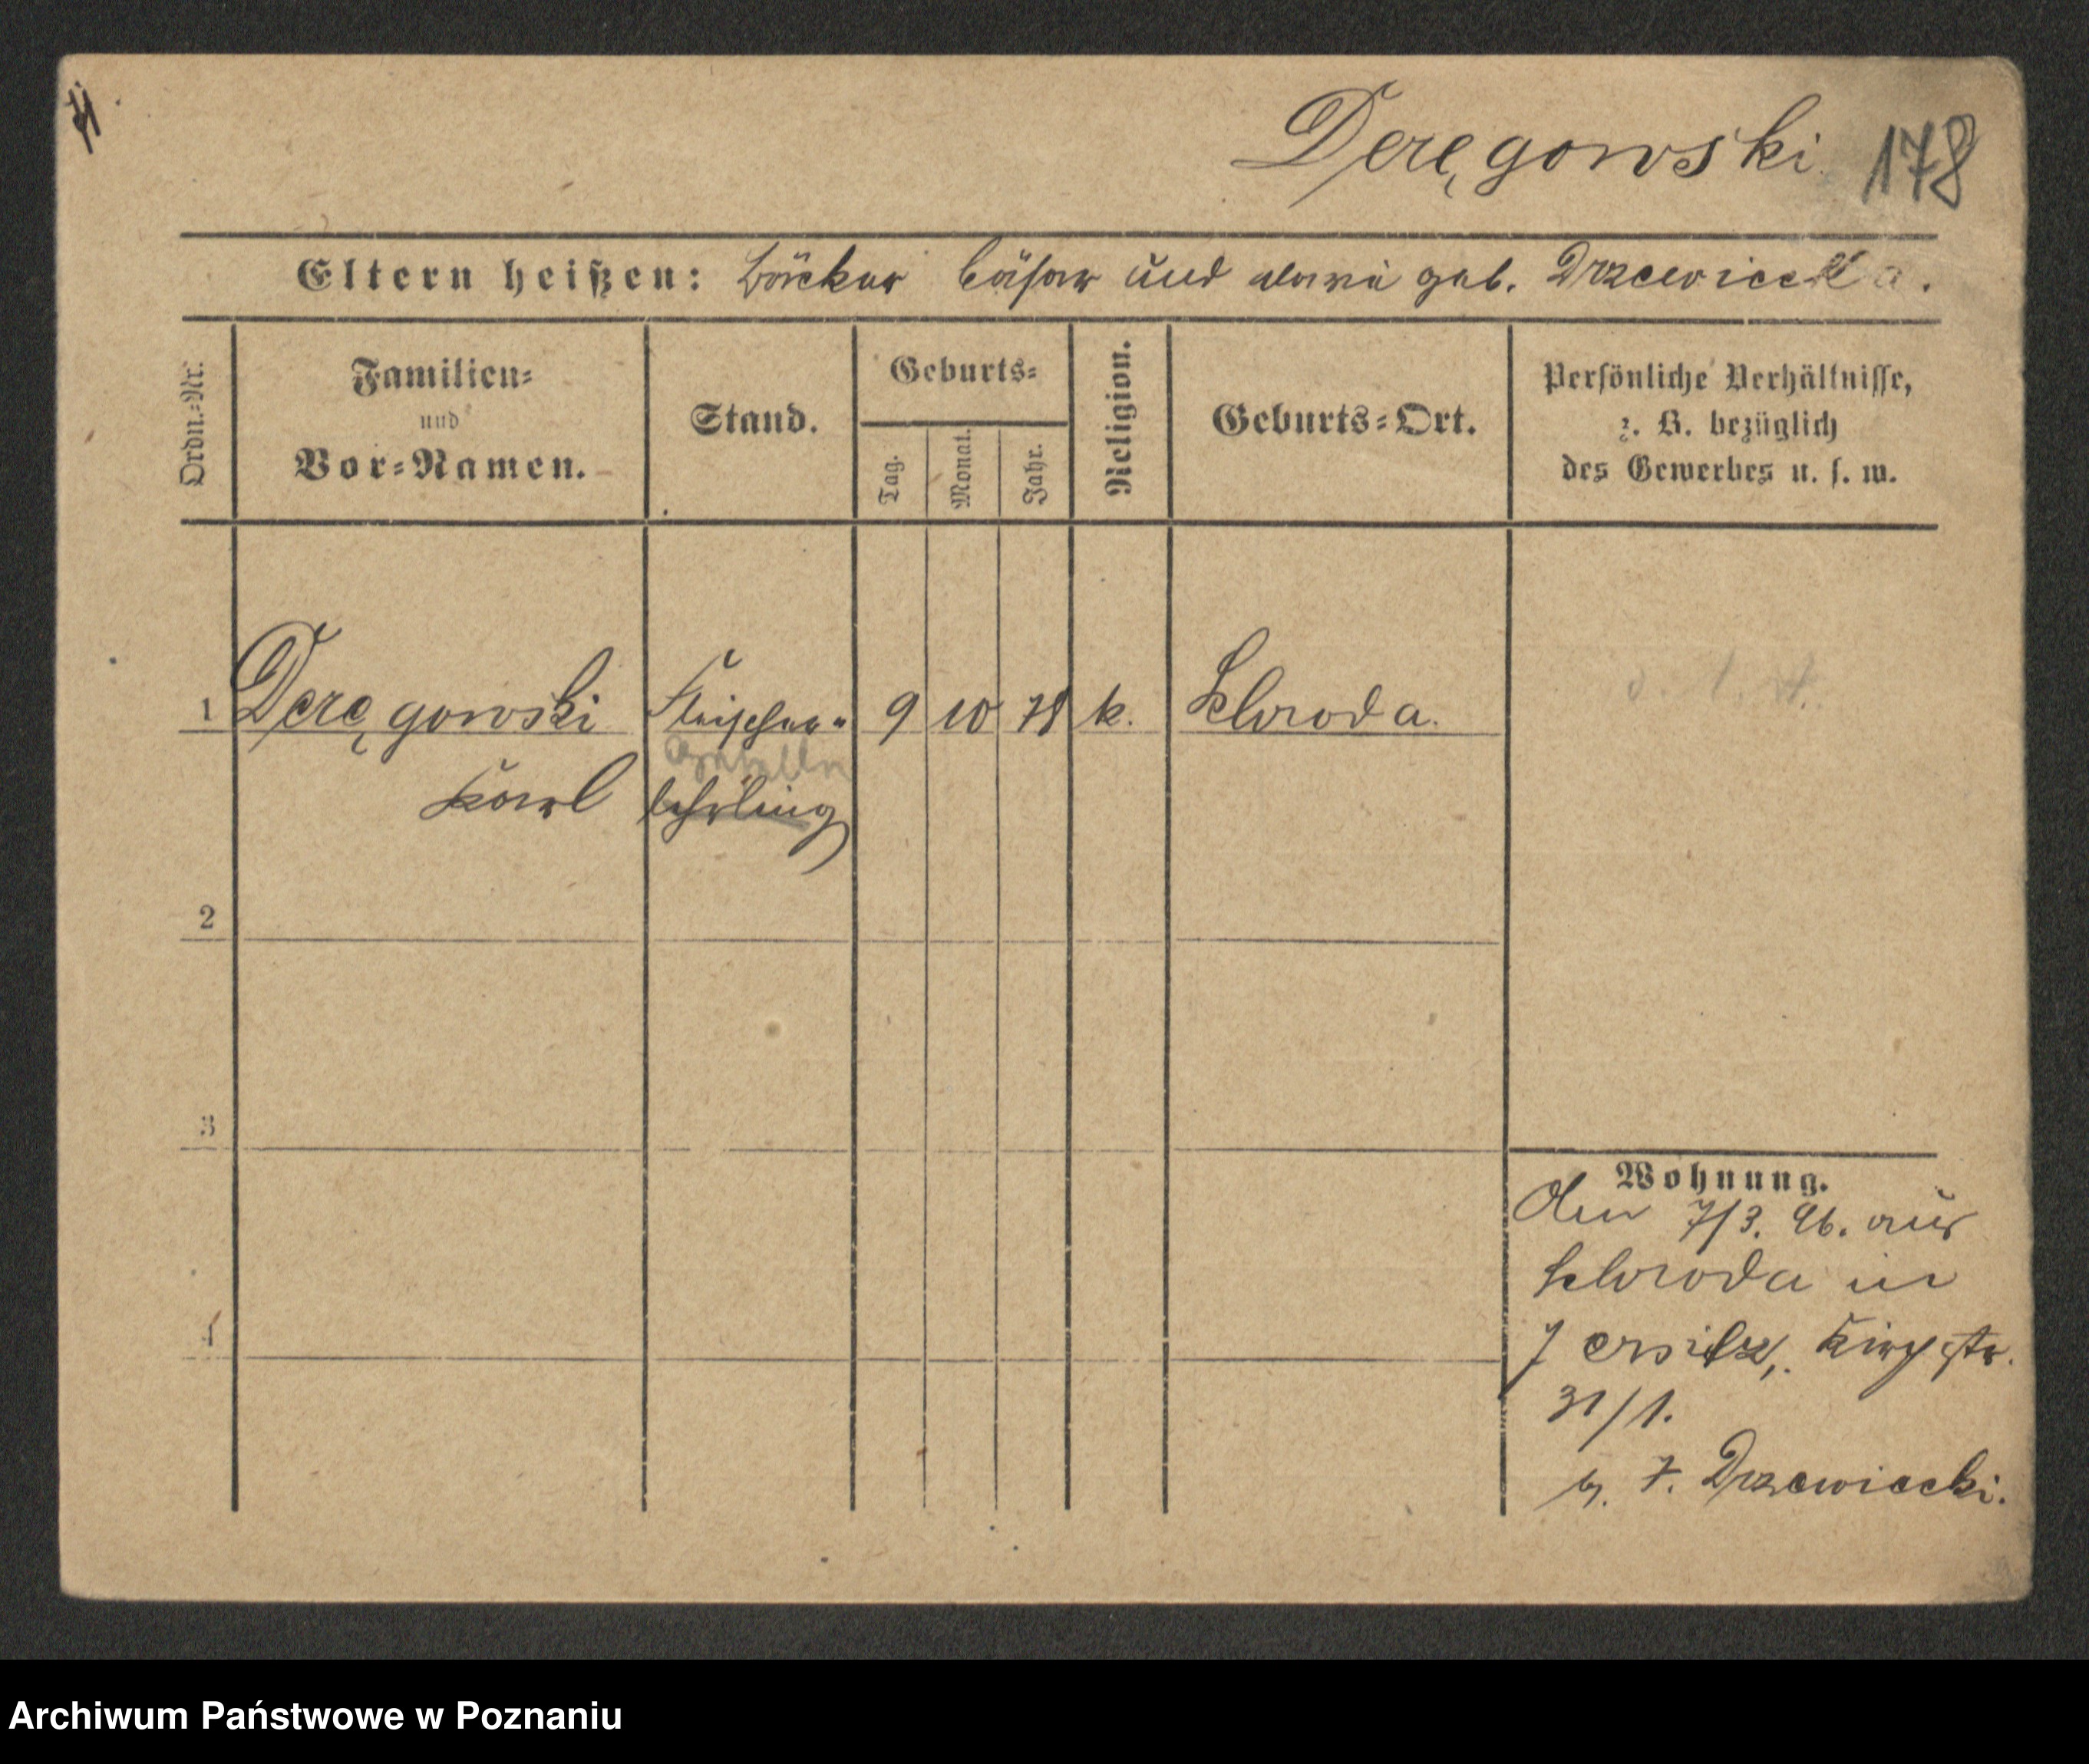 Deręgowski 178
Eltern heißen: Bäcker Cäsar und Marie geb. Drzewiecka.
Ordn.=Nr.
Familien=
und
Vor=Namen.
Stand.
Geburts=
Tag.
Monat.
Jahr.
Religion.
Geburts=Ort.
Persönliche Verhältnisse,
z. B. bezüglich
des Gewerbes u. s. w.
1 Deręgowski Fleischer= 9 10 78 k. Schroda.
Karl lehrling
2
3
4
Wohnung.
Den 7/3. 96. aus
Schroda in
Jersitz, Kirchstr.
31/1.
b. F. Drzewiecki.
Archiwum Państwowe w Poznaniu